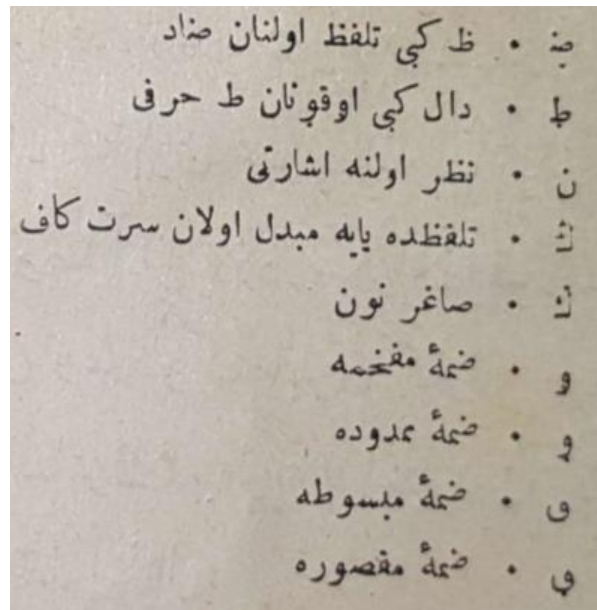 ضۭ • ظ كبی تلفظ اولنان ضاد
ط • دال كبی اوقونان ط حرفی
ن • نظر اولنه اشارتی
ڭ • تلفظده یایه مبدل اولان سرت كاف
ڭ • صاغر نون
و • ضمهٔ مفخمه
و • ضمهٔ ممدوده
و • ضمهٔ مبسوطه
و • ضمهٔ مقصوره